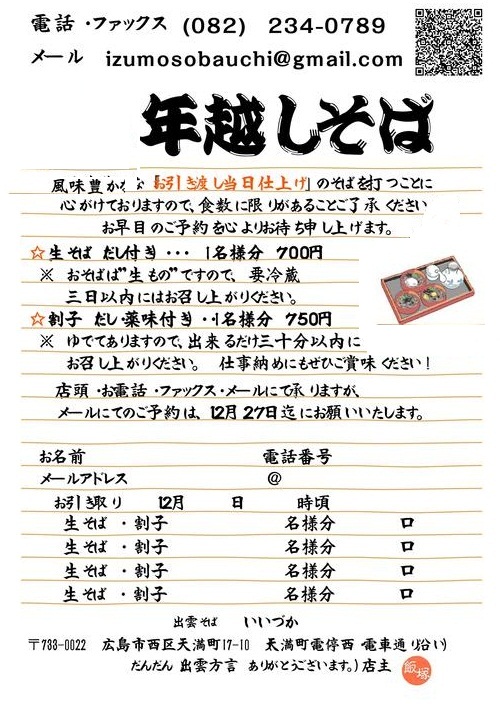 電話・ファックス (082) 234-0789
メール izumosobauchi@gmail.com
年越しそば
風味豊かな「お引き渡し当日仕上げ」のそばを打つことに
心がけておりますので、食数に限りがあることご了承ください
お早目のご予約を心よりお待ち申し上げます。
☆生そば だし付き ・・・ 1名様分 700円
※ おそばは"生もの"ですので、要冷蔵
三日以内にはお召し上がりください。
☆割子 だし・薬味付き ・・1名様分 750円
※ ゆでてありますので、出来るだけ三十分以内に
お召し上がりください。 仕事納めにもぜひご賞味ください!
店頭・お電話・ファックス・メールにて承りますが、
メールにてのご予約は、12月27日迄にお願いいたします。
お名前 電話番号
メールアドレス @
お引き取り 12月 日 時頃
生そば ・ 割子 名様分 口
生そば ・ 割子 名様分 口
生そば ・ 割子 名様分 口
生そば ・ 割子 名様分 口
出雲そば いいづか
〒733-0022 広島市西区天満町17-10 天満町電停西 電車通り沿い)
だんだん 出雲方言 ありがとうございます。) 店主 飯塚